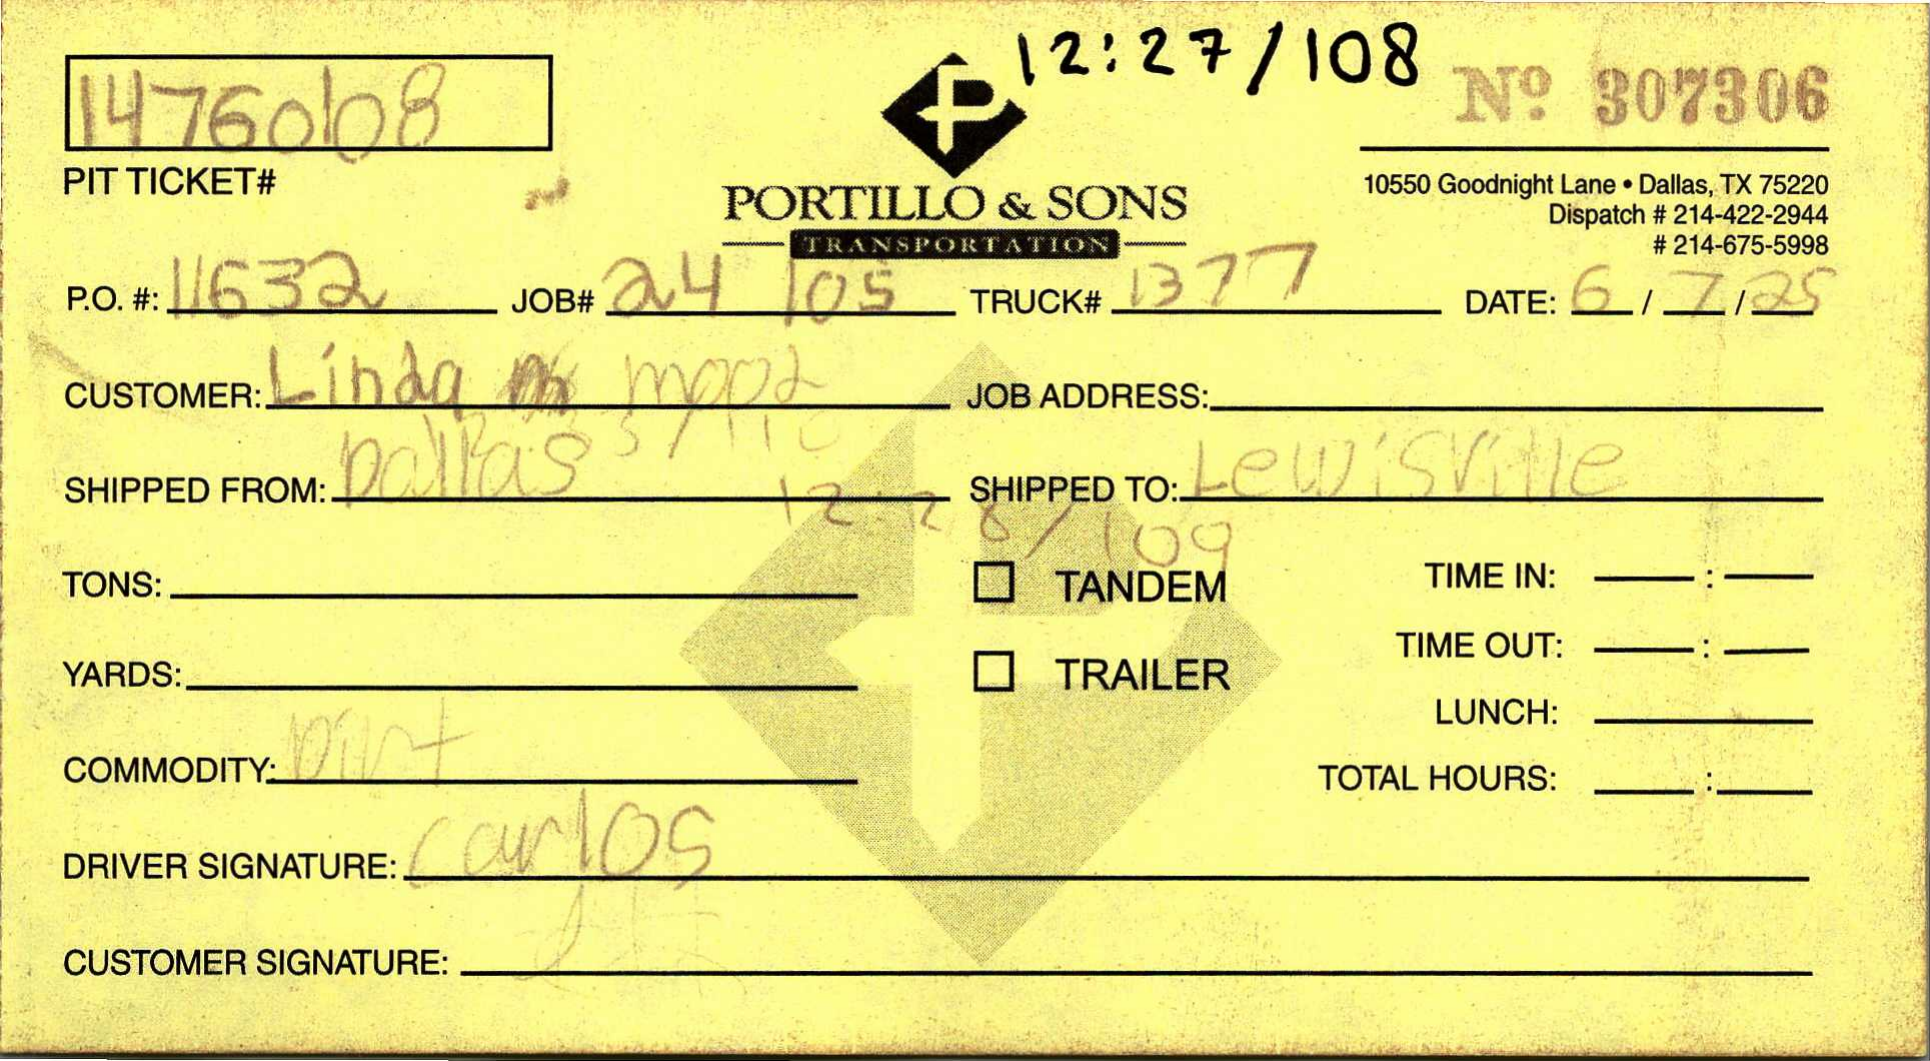 14760108
12:27/108
Nº 307306
PIT TICKET#
PORTILLO & SONS
TRANSPORTATION
10550 Goodnight Lane • Dallas, TX 75220
Dispatch # 214-422-2944
# 214-675-5998
P.O. #: 11632 JOB# 24 105 TRUCK# 1377 DATE: 6 / 7 / 25
CUSTOMER: Linda JOB ADDRESS:
SHIPPED FROM: Dallas SHIPPED TO: Lewisville
12:28/109
TONS: TANDEM TIME IN: :
YARDS: TRAILER TIME OUT: :
LUNCH:
COMMODITY: Dirt TOTAL HOURS: :
DRIVER SIGNATURE: Carlos
CUSTOMER SIGNATURE: